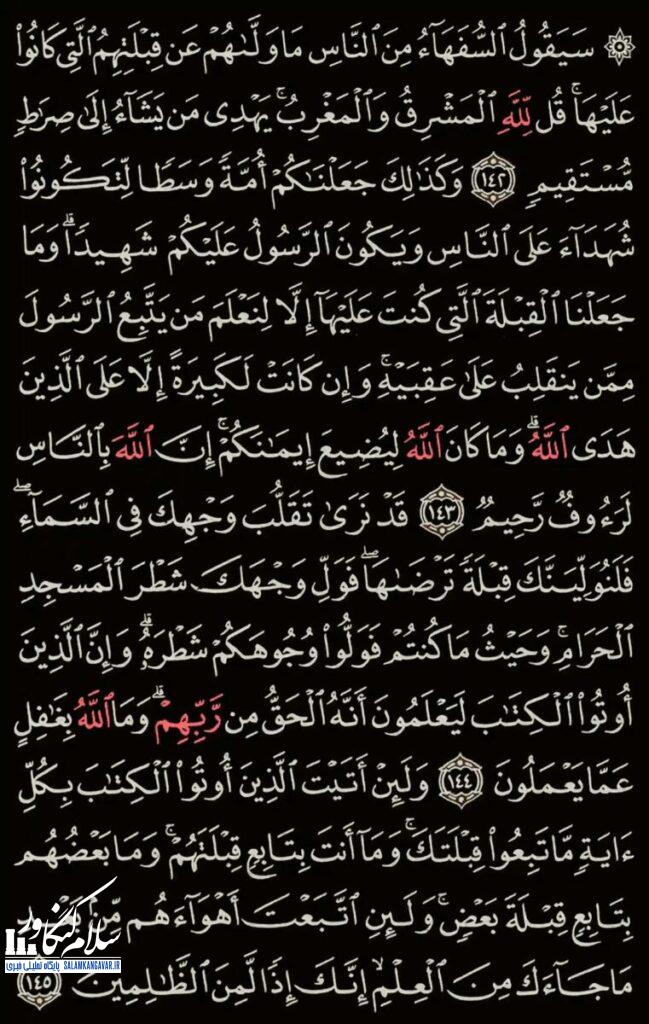 ۞ سَيَقُولُ ٱلسُّفَهَآءُ مِنَ ٱلنَّاسِ مَا وَلَّىٰهُمْ عَن قِبْلَتِهِمُ ٱلَّتِى كَانُوا۟
عَلَيْهَا ۚ قُل لِّلَّهِ ٱلْمَشْرِقُ وَٱلْمَغْرِبُ ۚ يَهْدِى مَن يَشَآءُ إِلَىٰ صِرَٰطٍ
مُّسْتَقِيمٍ ١٤٢ وَكَذَٰلِكَ جَعَلْنَٰكُمْ أُمَّةً وَسَطًا لِّتَكُونُوا۟
شُهَدَآءَ عَلَى ٱلنَّاسِ وَيَكُونَ ٱلرَّسُولُ عَلَيْكُمْ شَهِيدًا ۗ وَمَا
جَعَلْنَا ٱلْقِبْلَةَ ٱلَّتِى كُنتَ عَلَيْهَآ إِلَّا لِنَعْلَمَ مَن يَتَّبِعُ ٱلرَّسُولَ
مِمَّن يَنقَلِبُ عَلَىٰ عَقِبَيْهِ ۚ وَإِن كَانَتْ لَكَبِيرَةً إِلَّا عَلَى ٱلَّذِينَ
هَدَى ٱللَّهُ ۗ وَمَا كَانَ ٱللَّهُ لِيُضِيعَ إِيمَٰنَكُمْ ۚ إِنَّ ٱللَّهَ بِٱلنَّاسِ
لَرَءُوفٌ رَّحِيمٌ ١٤٣ قَدْ نَرَىٰ تَقَلُّبَ وَجْهِكَ فِى ٱلسَّمَآءِ ۖ
فَلَنُوَلِّيَنَّكَ قِبْلَةً تَرْضَىٰهَا ۚ فَوَلِّ وَجْهَكَ شَطْرَ ٱلْمَسْجِدِ
ٱلْحَرَامِ ۚ وَحَيْثُ مَا كُنتُمْ فَوَلُّوا۟ وُجُوهَكُمْ شَطْرَهُۥ ۗ وَإِنَّ ٱلَّذِينَ
أُوتُوا۟ ٱلْكِتَٰبَ لَيَعْلَمُونَ أَنَّهُ ٱلْحَقُّ مِن رَّبِّهِمْ ۗ وَمَا ٱللَّهُ بِغَٰفِلٍ
عَمَّا يَعْمَلُونَ ١٤٤ وَلَئِنْ أَتَيْتَ ٱلَّذِينَ أُوتُوا۟ ٱلْكِتَٰبَ بِكُلِّ
ءَايَةٍ مَّا تَبِعُوا۟ قِبْلَتَكَ ۚ وَمَآ أَنتَ بِتَابِعٍ قِبْلَتَهُمْ ۚ وَمَا بَعْضُهُم
بِتَابِعٍ قِبْلَةَ بَعْضٍ ۚ وَلَئِنِ ٱتَّبَعْتَ أَهْوَآءَهُم مِّنۢ
مَا جَآءَكَ مِنَ ٱلْعِلْمِ ۙ إِنَّكَ إِذًا لَّمِنَ ٱلظَّٰلِمِينَ ١٤٥
سلام کنگاور
پایگاه تحلیلی خبری SALAMKANGAVAR.IR